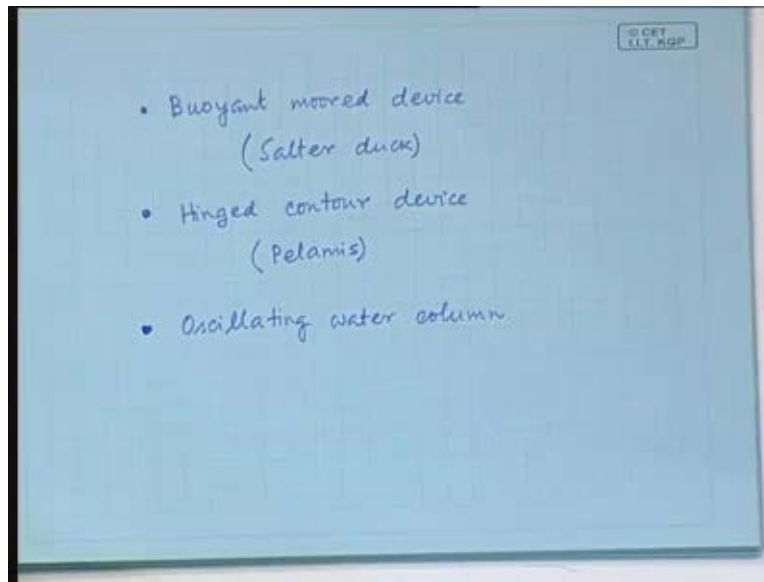 © CET
I.I.T. KGP
• Buoyant moored device
(Salter duck)
• Hinged contour device
(Pelamis)
• Oscillating water column